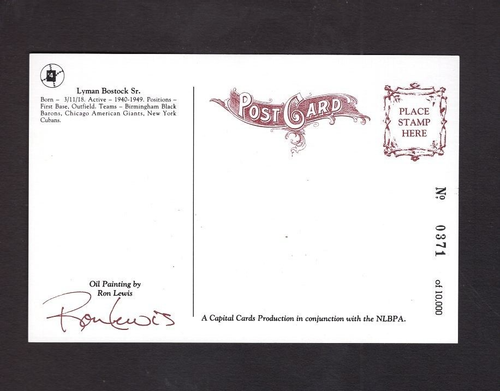 4
Lyman Bostock Sr.
Born – 3/11/18. Active – 1940-1949. Positions –
First Base, Outfield. Teams – Birmingham Black
Barons, Chicago American Giants, New York
Cubans.
POST CARD
PLACE
STAMP
HERE
№ 0371 of 10,000
Oil Painting by
Ron Lewis
Ron Lewis
A Capital Cards Production in conjunction with the NLBPA.